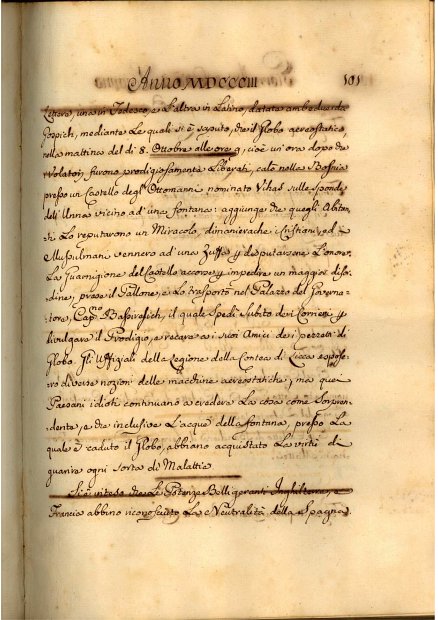 Anno MDCCCIII 101
Lettere, una in Tedesco, e l'altra in Latino, datate ambedue da
Joppich, mediante le quali si è saputo, che il Globo aereostatico
nella mattina del dì 8. Ottobre alle ore 9, cioè un'ora dopo che
i Volatori furono prodigiosamente liberati, calò nella Bosnia
presso un Castello degli Ottomanni nominato Vihaz sulle sponde
dell'Unna vicino ad una fontana: aggiunge che quegli Abitan-
ti lo reputavono un Miracolo, dimanierache i Cristiani, ed i
Musulmani vennero ad una Zuffa p disputarsene l'onore.
La Guarnigione del Castello accorse p impedire un maggior disor-
dine, prese il Pallone, e lo trasportò nel Palazzo del Governa-
tore, Capno il quale spedì subito dei Corrieri p
divulgare il Prodigio, e recare a' suoi Amici dei pezzetti di
Globo. Gli Uffiziali della Legione della Contea di Licca espose-
ro diverse nozioni delle macchine aereostatiche, ma quei
Paesani idioti continuano a credere la cosa come Sorpren-
dente, e che inclusive l'acque della fontana, presso la
quale è caduto il Globo, abbiano acquistato la virtù di
guarire ogni sorta di Malattie.
Si è inteso che le Potenze Belligeranti Inghilterra, e
Francia abbino riconosciuto la Neutralità della Spagna,